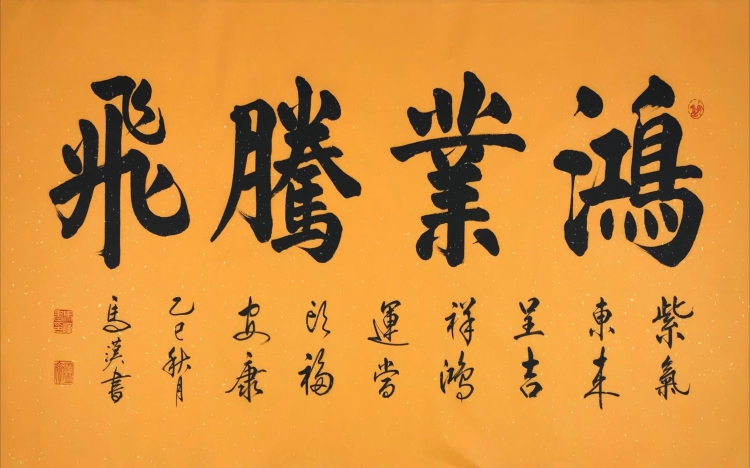 鴻業騰飛
紫氣
東来
呈吉
祥鴻
運當
頭福
安康
乙巳秋月
馬漢書